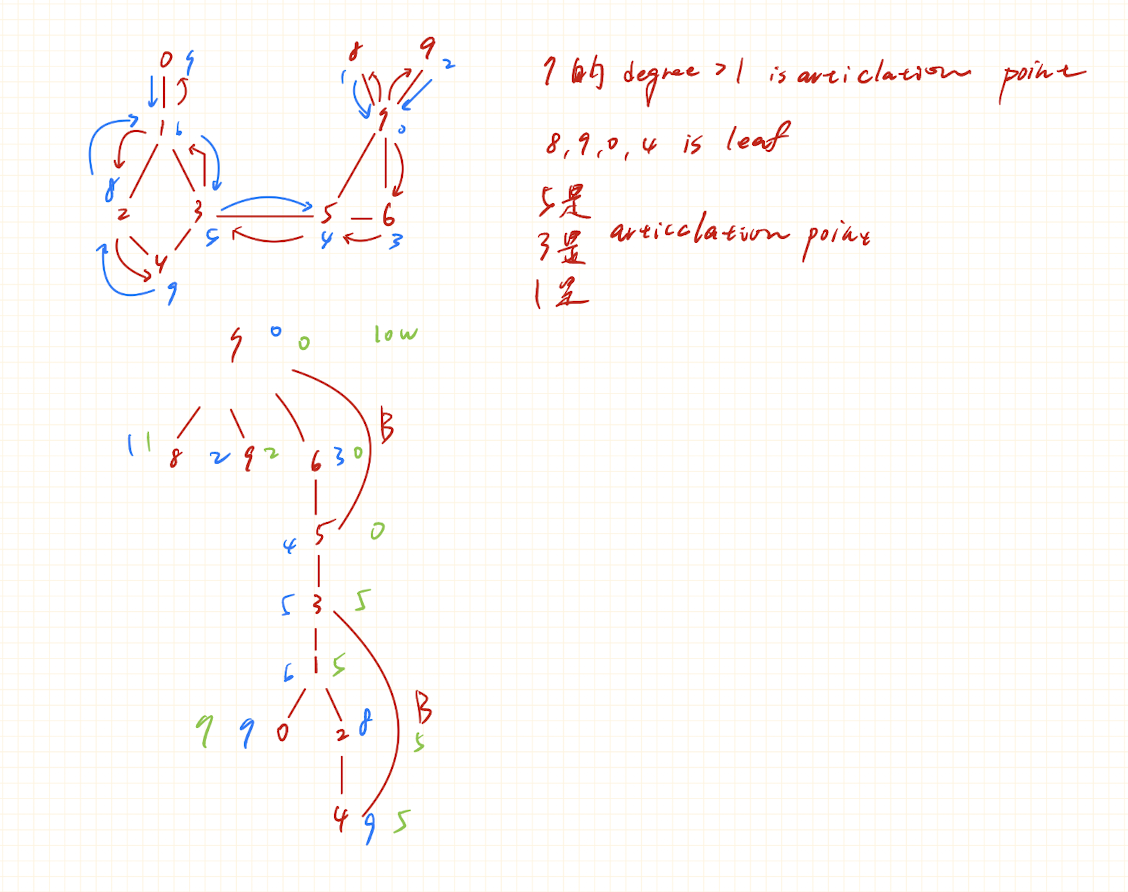 0 9
8 9
1 2
7 0
1 6
8
2 3 5 6
5 4 3
4
9
7 的 degree > 1 is articlation point
8, 9, 0, 4 is leaf
5是
3是 articalation point
1是
7 0 0 low
B
1 1 8 2 9 2 6 3 0
4 5 0
5 3 5
6 1 5
B
7 7 0 2 8 5
4 9 5